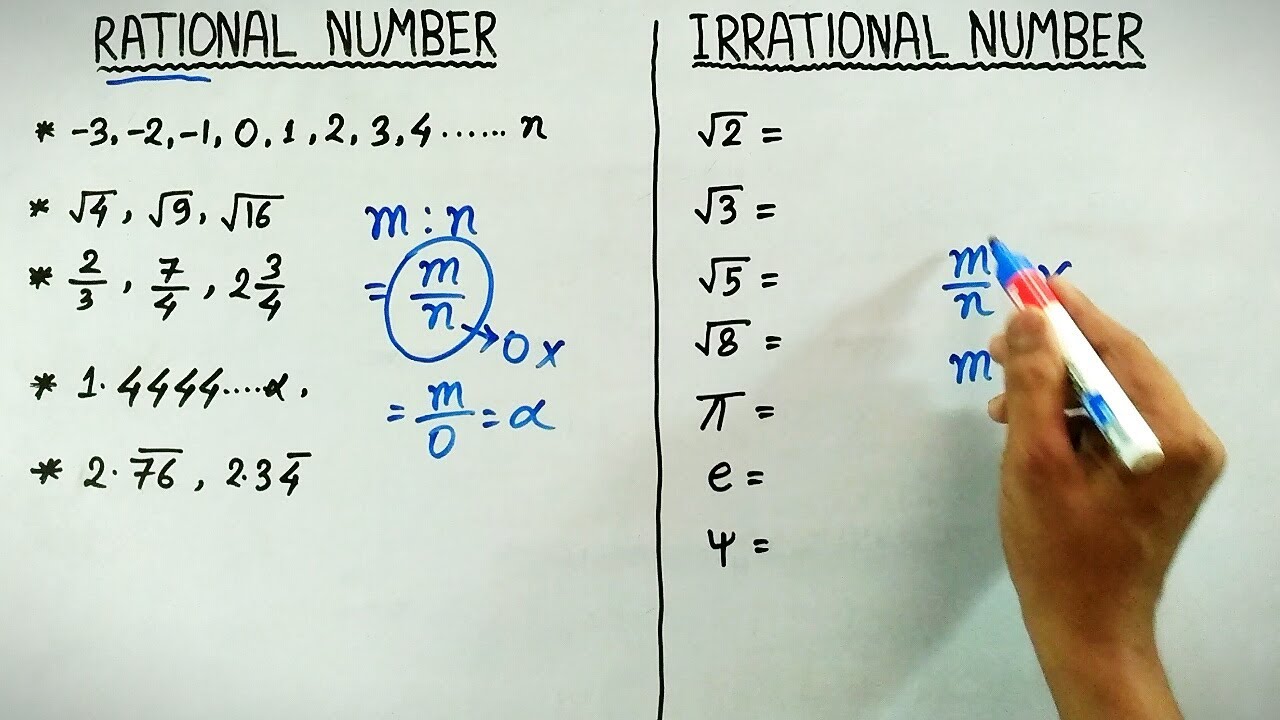 RATIONAL NUMBER
* -3, -2, -1, 0, 1, 2, 3, 4 ...... n
* √4, √9, √16
* 2/3, 7/4, 2 3/4
* 1.4444....α.
* 2.7̅6̅, 2.34̅
m : n
= m/n → 0 x
= m/0 = α
IRRATIONAL NUMBER
√2 =
√3 =
√5 =
√8 =
π =
e =
Ψ =
m/n
m